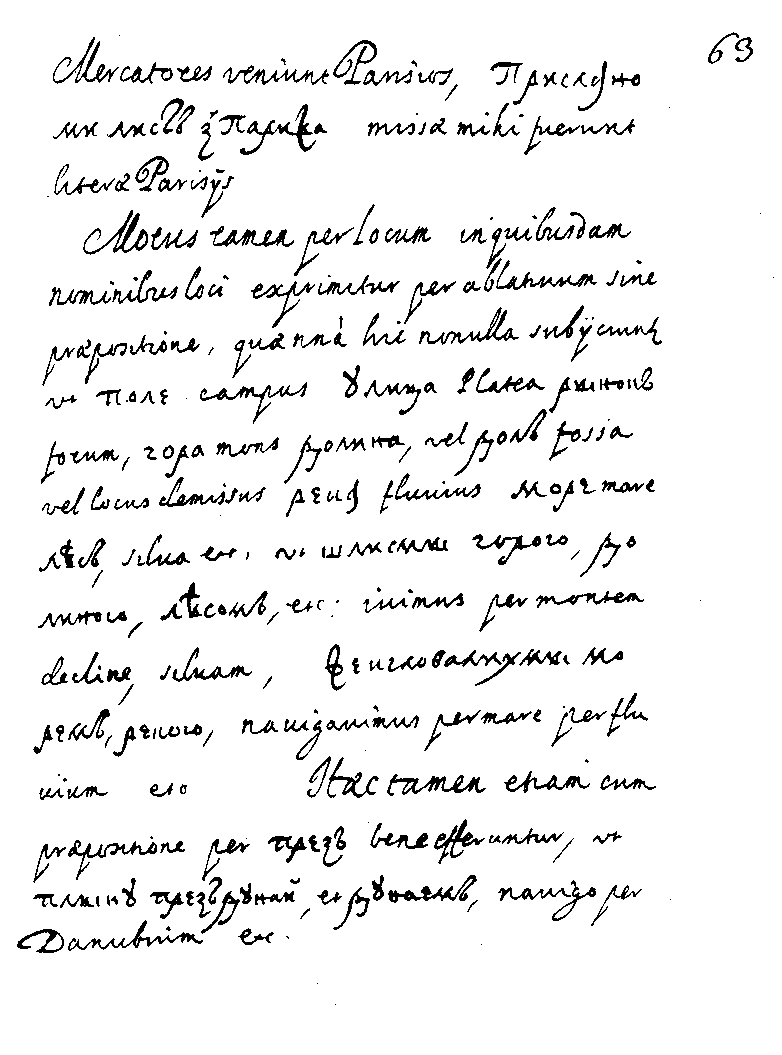 63
Mercatores veniunt Parisios, Прислано
ми листъ з Парижа missæ mihi fuerunt
literæ Parisijs
Motus tamen per locum in quibusdam
nominibus loci exprimitur per ablativum sine
præpositione, quænnã hic nonulla subijciunt
ut поле campus ꙋлица Platea рынокъ
forum, гора mons долина, vel долъ fossa
vel locus demissus река fluvius море mare
лѣсъ, silva etc, ut шлисмы горою, до
линою, лѣсомъ, etc: ivimus per montem
decline, silvam, мо
ремъ, рекою, navigavimus per mare per flu
vium etc Hæc tamen etiam cum
præpositione per презъ bene efferuntur, ut
плынꙋ презъ дꙋнай, et дꙋнаемъ, navigo per
Danubium etc.